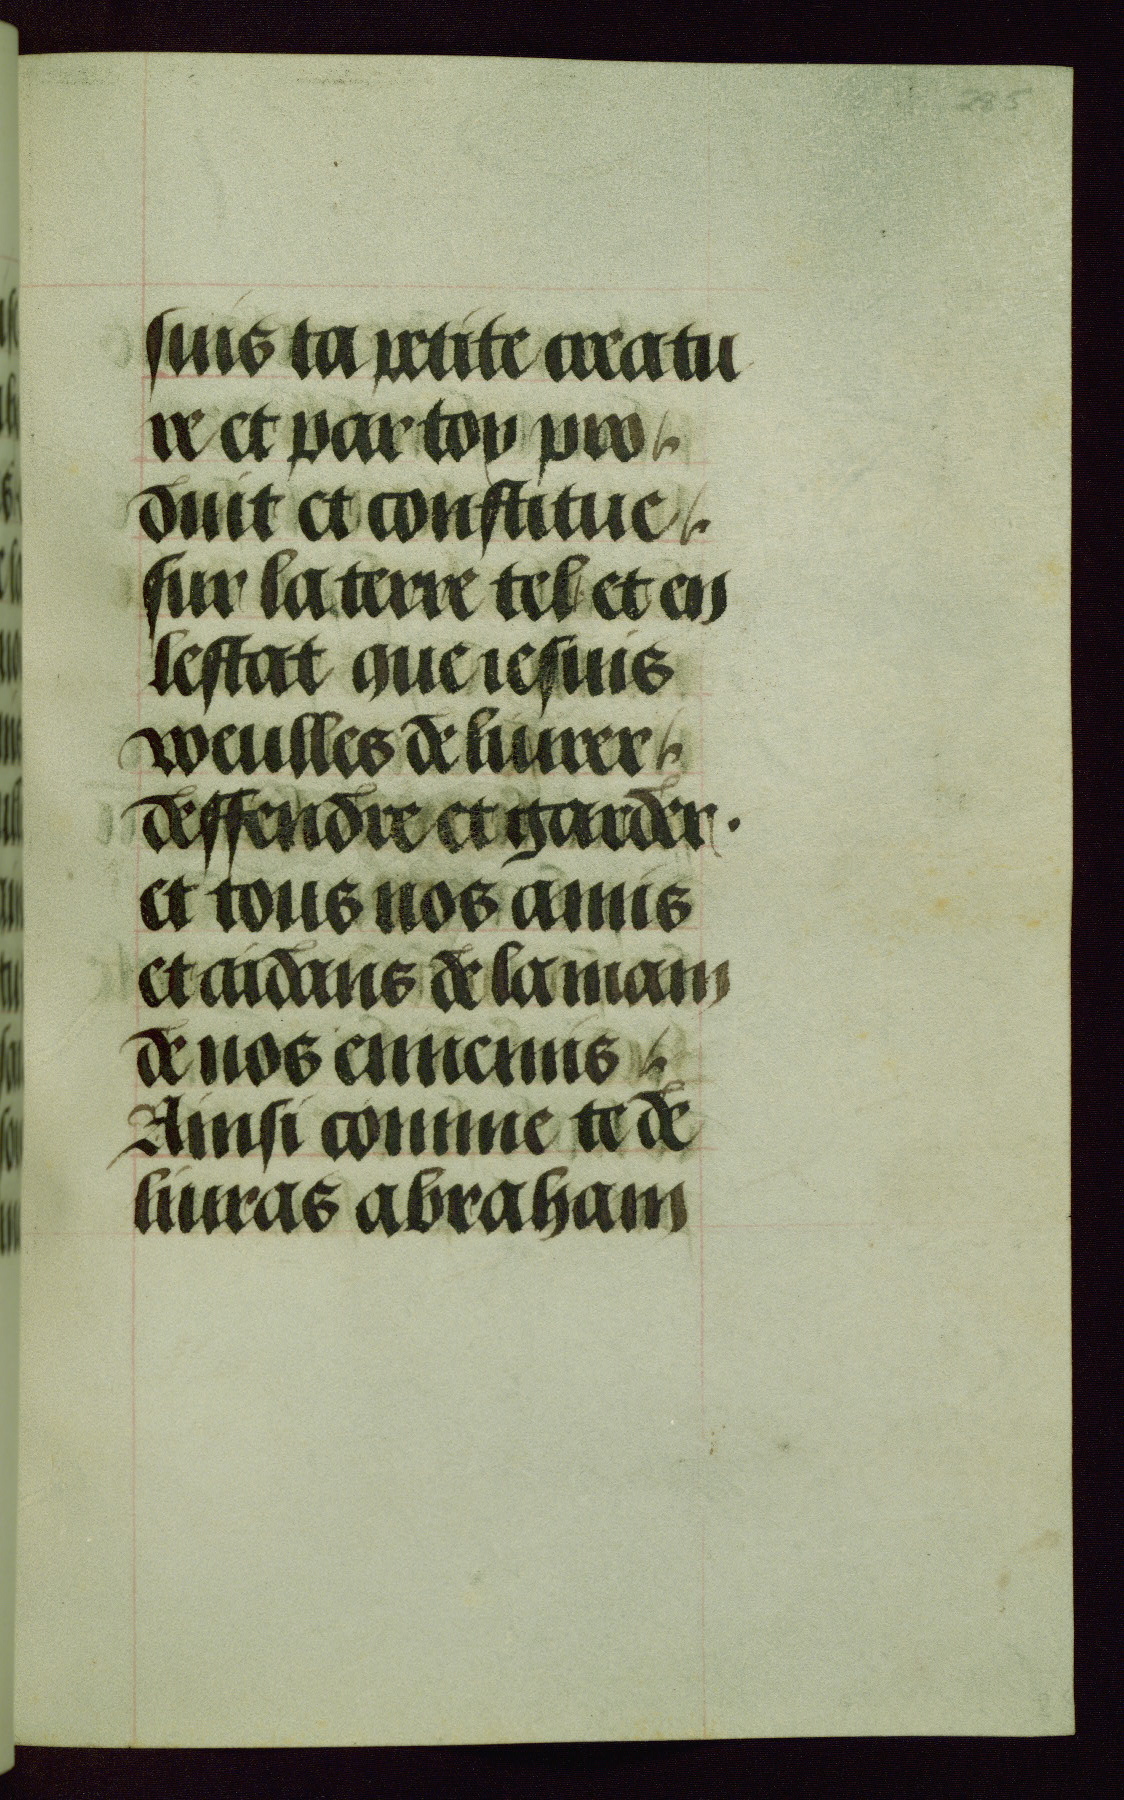 285
suis ta petite creatu
re et par toy pro
duit et constitue
sur la terre tel et en
lestat que ie suis
veulles deliurer
deffendre et garder.
et tous nos amis
et aidans de la main
de nos ennemis
Ainsi comme te de
liuras abraham